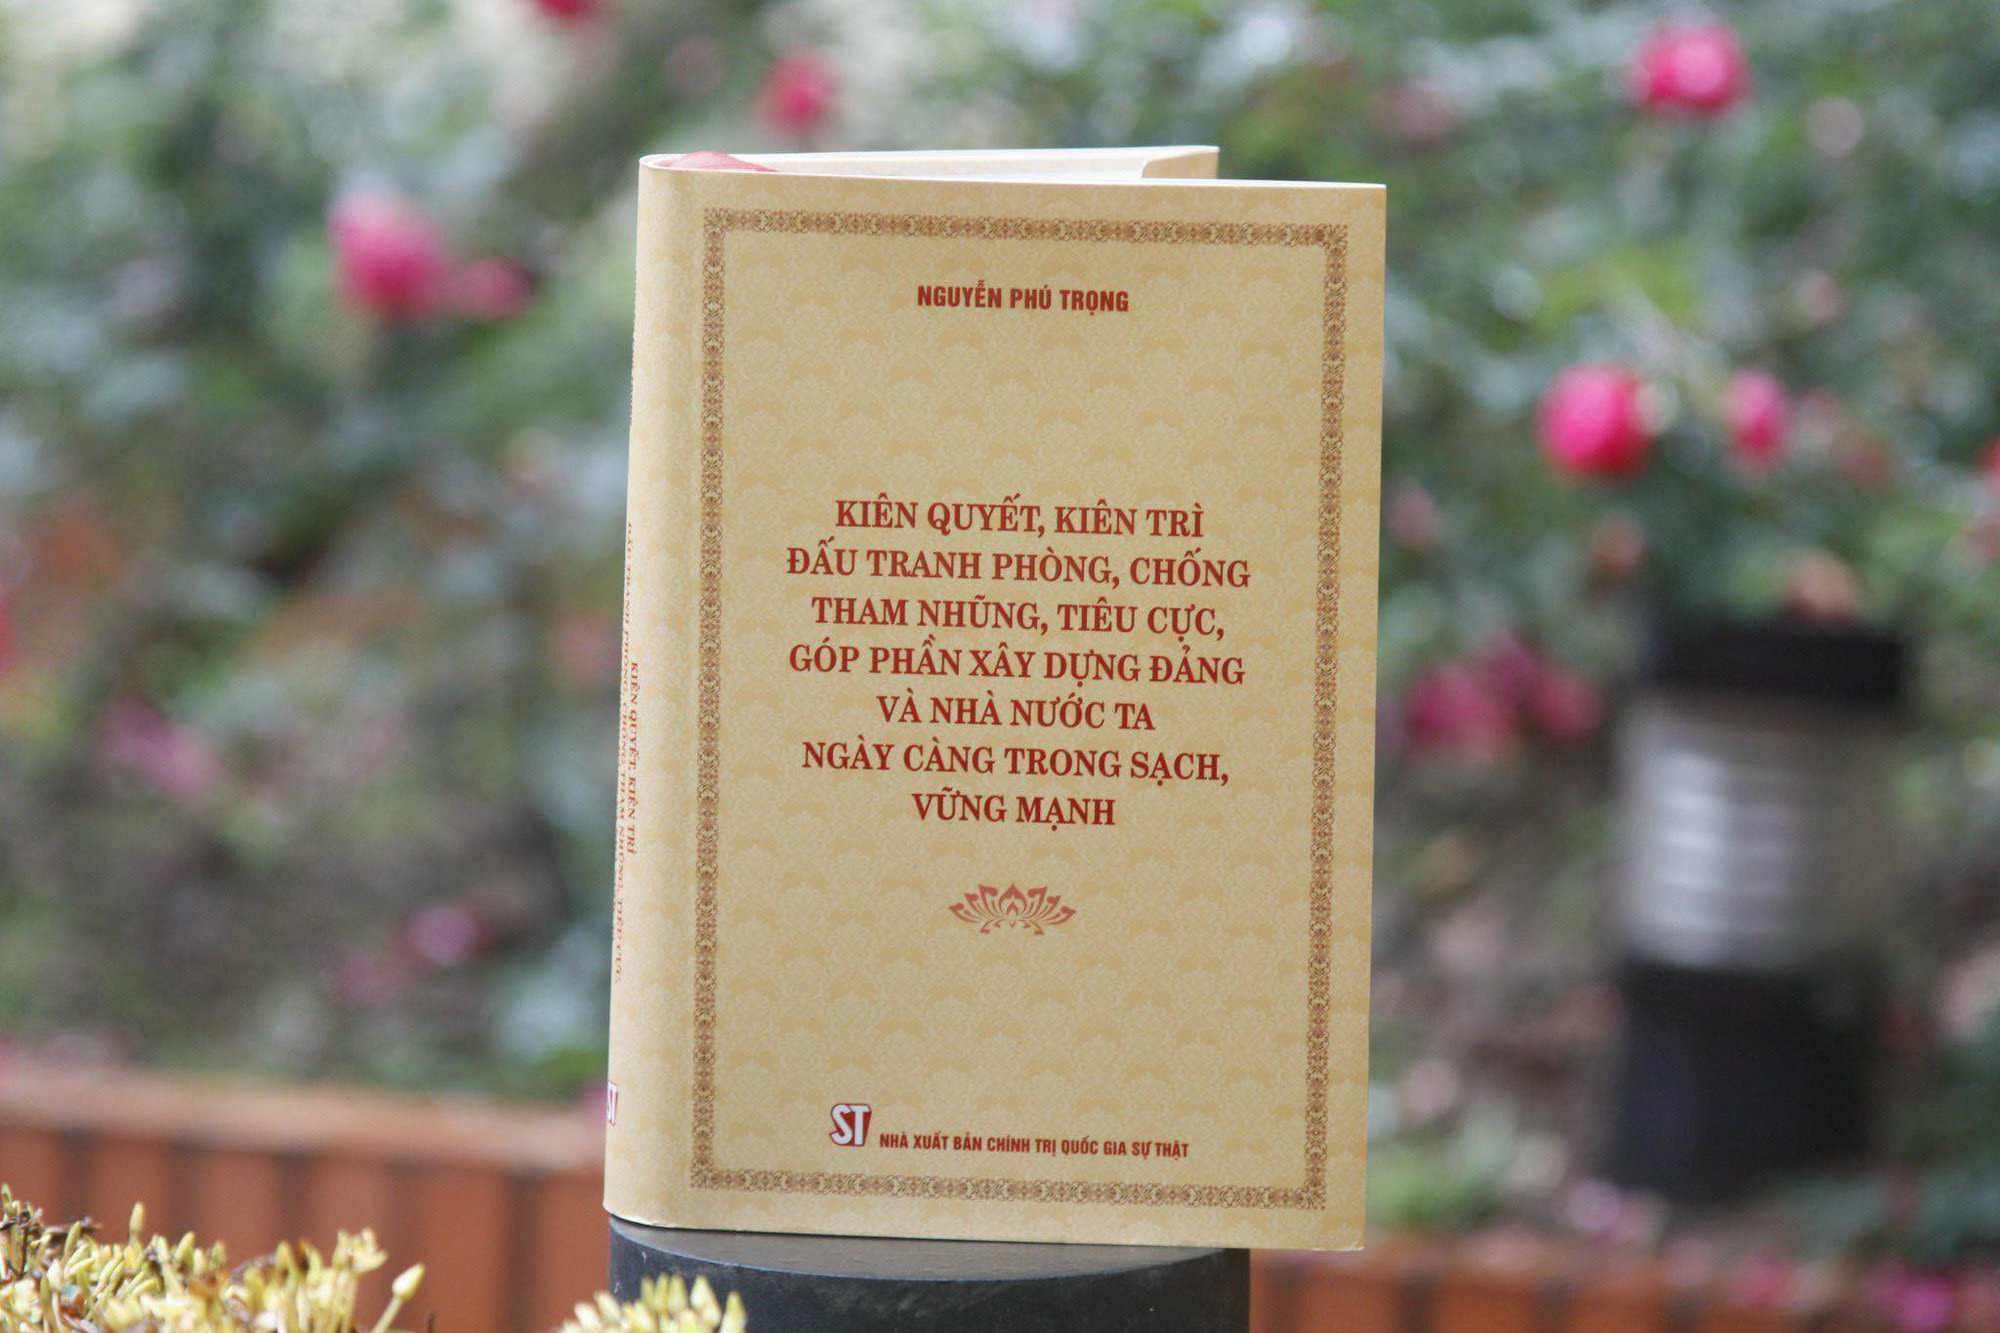 NGUYỄN PHÚ TRỌNG
KIÊN QUYẾT, KIÊN TRÌ
ĐẤU TRANH PHÒNG, CHỐNG
THAM NHŨNG, TIÊU CỰC,
GÓP PHẦN XÂY DỰNG ĐẢNG
VÀ NHÀ NƯỚC TA
NGÀY CÀNG TRONG SẠCH,
VỮNG MẠNH
ST
NHÀ XUẤT BẢN CHÍNH TRỊ QUỐC GIA SỰ THẬT
KIÊN QUYẾT, KIÊN TRÌ
ĐẤU TRANH PHÒNG, CHỐNG THAM NHŨNG, TIÊU CỰC,
ST